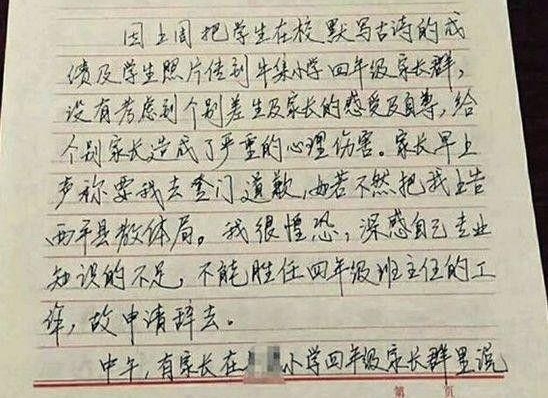 因上周把学生在校默写古诗的成
绩及学生照片传到牛集小学四年级家长群，
没有考虑到个别差生及家长的感受及自尊，给
个别家长造成了严重的心理伤害。家长早上
声称要我去登门道歉，如若不然把我上告
西平县教体局。我很惶恐，深感自己专业
知识的不足，不能胜任四年级班主任的工
作，故申请辞去。
中午，有家长在小学四年级家长群里说
第 页